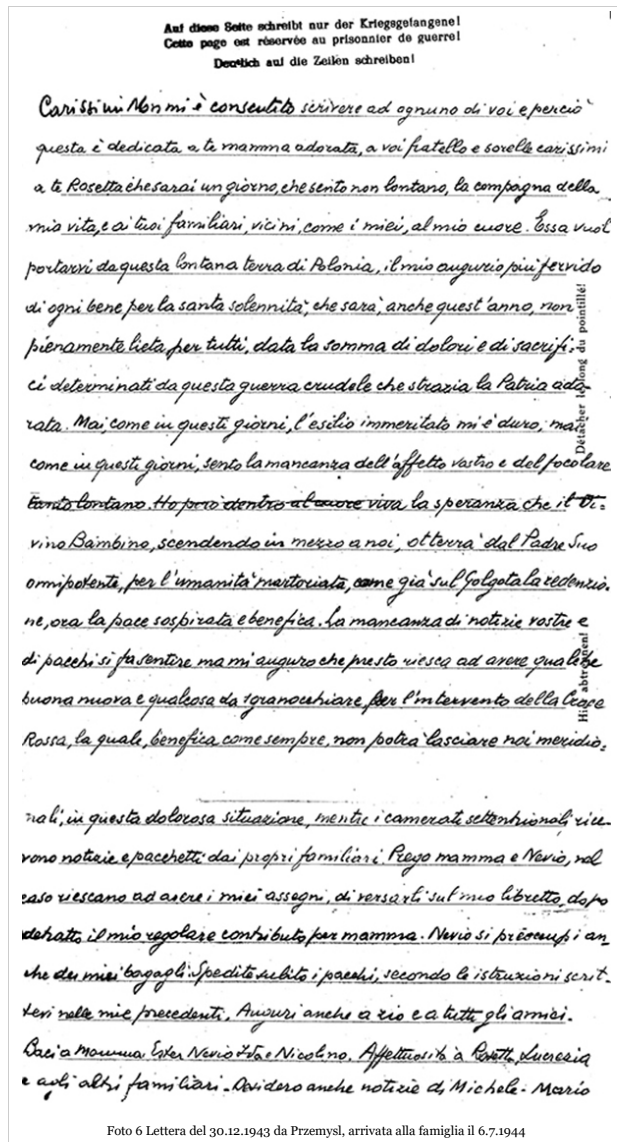 Auf diese Seite schreibt nur der Kriegsgefangene!
Cette page est réservée au prisonnier de guerre!
Deutlich auf die Zeilen schreiben!
Carissimi Non mi è consentito scrivere ad ognuno di voi e perciò
questa è dedicata a te mamma adorata, a voi fratello e sorelle carissimi
a te Rosetta che sarai un giorno, che sento non lontano, la compagna della
mia vita, e ai tuoi familiari, vicini, come i miei, al mio cuore. Essa vuol
portarvi da questa lontana terra di Polonia, il mio augurio più fervido
di ogni bene per la santa solennità, che sarà, anche quest'anno, non
pienamente lieta, per tutti, data la somma di dolori e di sacrifi=
ci determinati da questa guerra crudele che strazia la Patria ado-
rata. Mai, come in questi giorni, l'esilio immeritato mi è duro; mai
come in questi giorni, sento la mancanza dell'affetto vostro e del focolare
tanto lontano. Ho però dentro al cuore viva la speranza che il Di=
vino Bambino, scendendo in mezzo a noi, otterrà dal Padre Suo
omnipotente, per l'umanità martoriata, come già sul Golgota la redenzio.
ne, ora la pace sospirata e benefica. La mancanza di notizie vostre e
di pacchi si fa sentire ma mi auguro che presto riesca ad avere qualche
buona nuova e qualcosa da sgranocchiare, per l'intervento della Croce
Rossa, la quale, benefica come sempre, non potrà lasciare noi meridio=
nali, in questa dolorosa situazione, mentre i camerati settentrionali rice-
vono notizie e pacchetti dai propri familiari. Prego mamma e Nevio, nel
caso riescano ad avere i miei assegni, di versarli sul mio libretto, dopo
detratto il mio regolare contributo per mamma. Nevio si preoccupi an-
che dei miei bagagli. Spedite subito i pacchi, secondo le istruzioni scrit-
tevi nelle mie precedenti. Auguri anche a zio e a tutti gli amici.
Baci a Mamma Ester Nevio Ida e Nicolino. Affettuosità a Rosetta, Lucrezia
e agli altri familiari - Desidero anche notizie di Michele - Mario
Détacher le long du pointillé!
Hier abtrennen!
Foto 6 Lettera del 30.12.1943 da Przemysl, arrivata alla famiglia il 6.7.1944